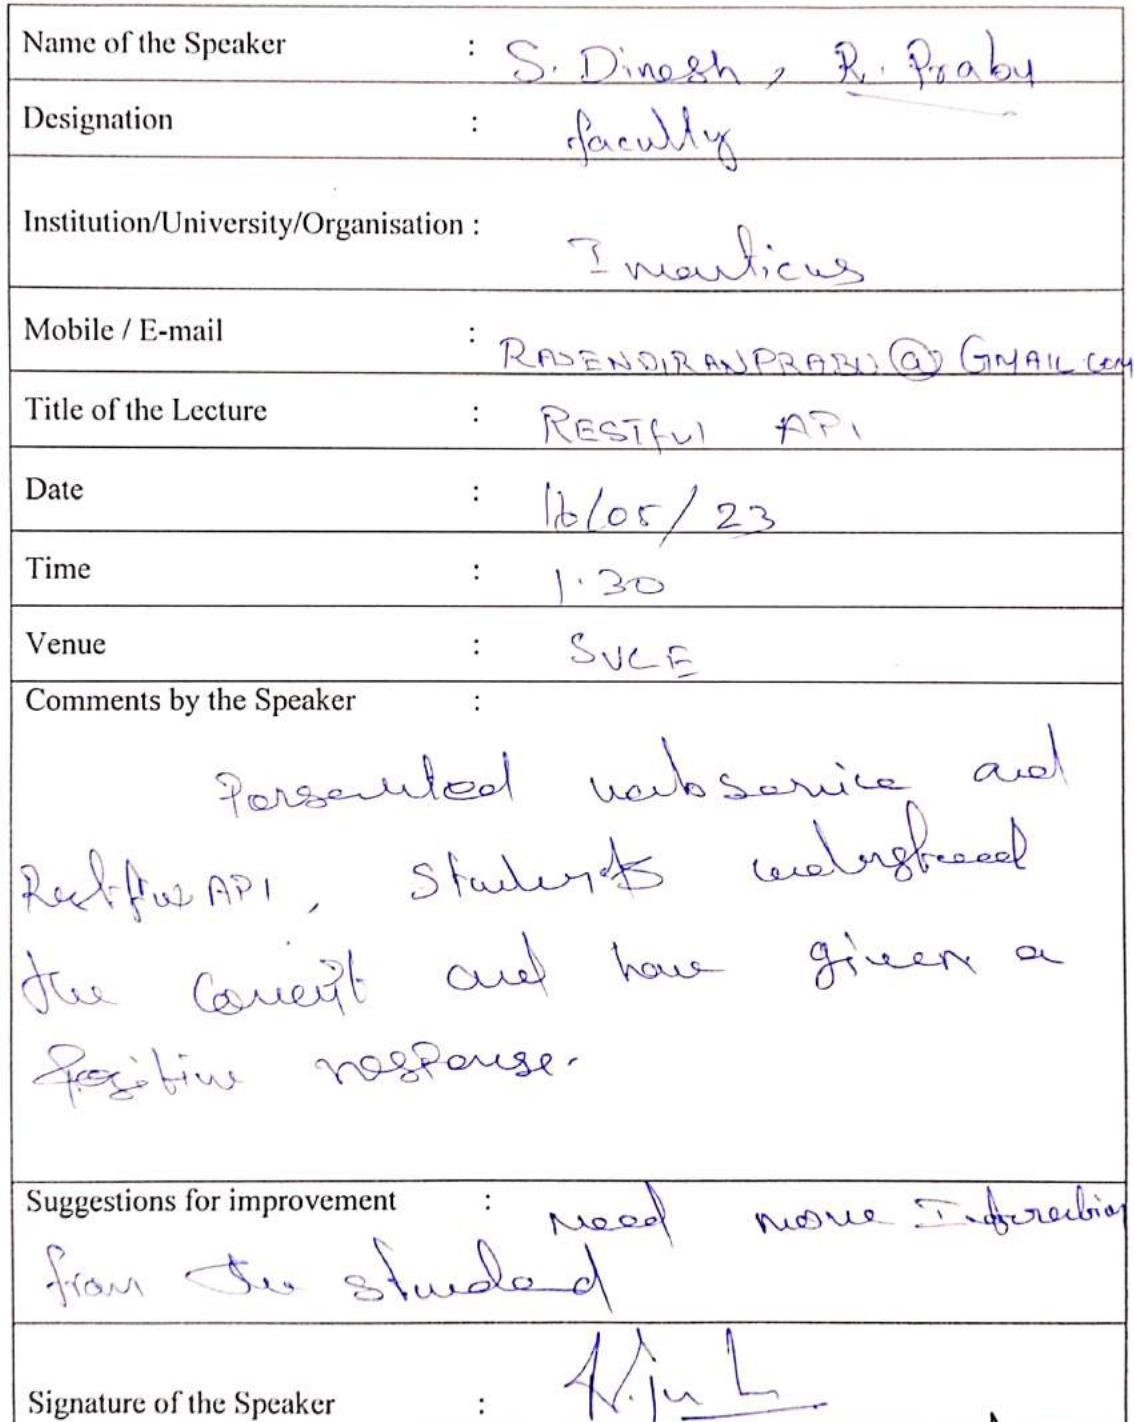 Name of the Speaker : S. Dinesh, R. Prabu
Designation : faculty
Institution/University/Organisation : Imarticus
Mobile / E-mail : RAJENDIRANPRABU@GMAIL.COM
Title of the Lecture : RESTful API
Date : 16/05/23
Time : 1.30
Venue : SVCE
Comments by the Speaker :
Persented webservice and
Restful API, Students understand
the concept and have given a
positive response.
Suggestions for improvement : need more
from the studend
Signature of the Speaker :